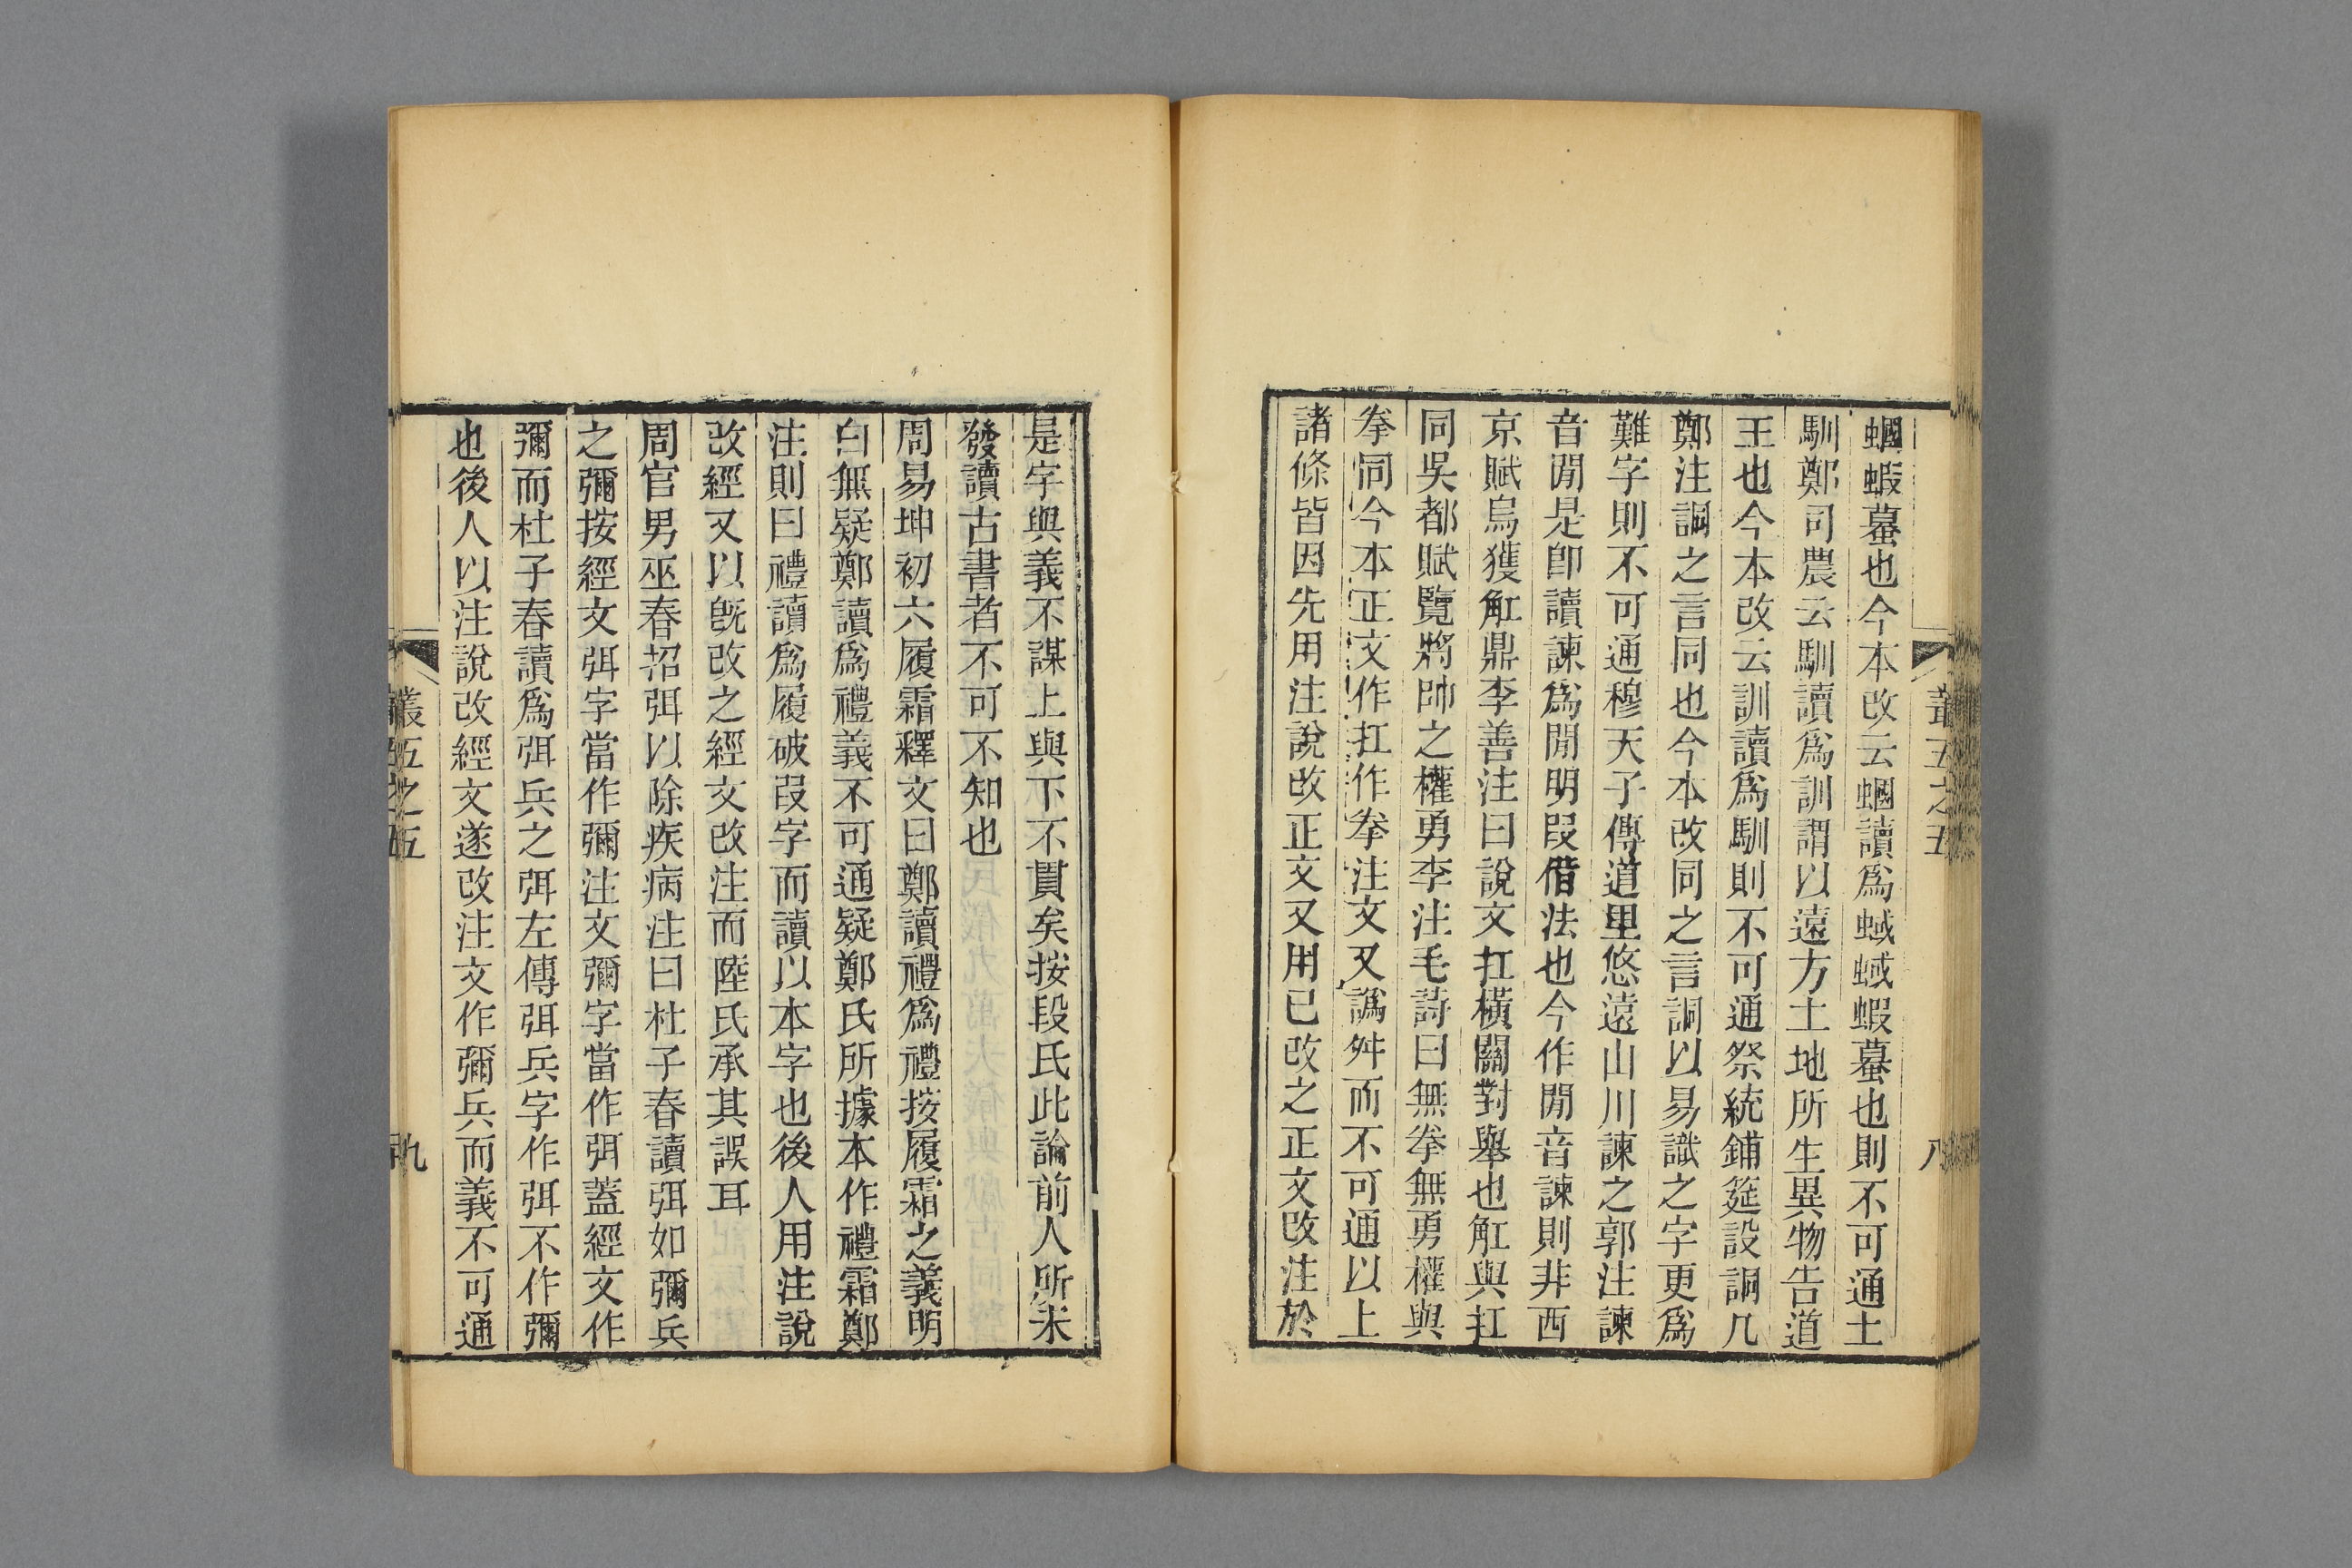 蟈蝦蟇也今本改云蟈讀爲蜮蜮蝦蟇也則不可通土
馴鄭司農云馴讀爲訓謂以遠方土地所生異物告道
王也今本改云訓讀爲馴則不可通祭統鋪筵設詷几
鄭注詷之言同也今本改同之言詷以易識之字更爲
難字則不可通穆天子傳道里悠遠山川諫之郭注諫
音閒是卽讀諫爲閒明叚借法也今作閒音諫則非西
京賦烏獲舡鼎李善注曰說文扛橫關對舉也舡與扛
同吳都賦覽將帥之權勇李注毛詩曰無拳無勇權與
拳同今本正文作扛作拳注文又譌舛而不可通以上
諸條皆因先用注說改正文又用已改之正文改注於
叢五之五
八
是字與義不謀上與下不貫矣按段氏此論前人所未
發讀古書者不可不知也
周易坤初六履霜釋文曰鄭讀禮爲禮按履霜之義明
白無疑鄭讀爲禮義不可通疑鄭氏所據本作禮霜鄭
注則曰禮讀爲履破叚字而讀以本字也後人用注說
改經又以旣改之經文改注而陸氏承其誤耳
周官男巫春招弭以除疾病注曰杜子春讀弭如彌兵
之彌按經文弭字當作彌注文彌字當作弭蓋經文作
彌而杜子春讀爲弭兵之弭左傳弭兵字作弭不作彌
也後人以注說改經文遂改注文作彌兵而義不可通
叢五之五
九